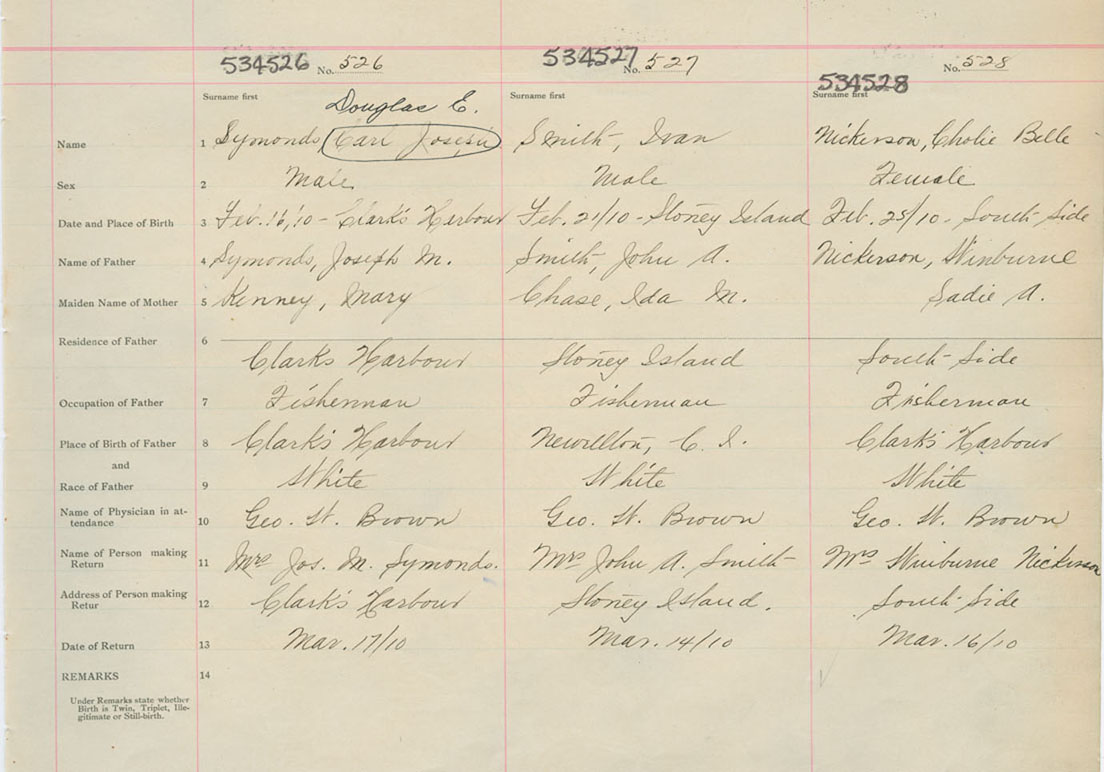 534526 No. 526 534527 No. 527 534528 No. 528
Surname first Surname first Surname first
Douglas E.
Name 1 Symonds, Carl Joseph Smith, Ivan Nickerson, Cholie Belle
Sex 2 Male Male Female
Date and Place of Birth 3 Feb. 16/10 - Clark's Harbour Feb. 21/10 - Stoney Island Feb. 25/10 - South Side
Name of Father 4 Symonds, Joseph M. Smith, John A. Nickerson, Winburne
Maiden Name of Mother 5 Kenney, Mary Chase, Ida M. Sadie A.
Residence of Father 6
Clarks Harbour Stoney Island South Side
Occupation of Father 7 Fisherman Fisherman Fisherman
Place of Birth of Father 8 Clark's Harbour Newellton, C. I. Clark's Harbour
and
Race of Father 9 White White White
Name of Physician in at-
tendance 10 Geo. W. Brown Geo. W. Brown Geo. W. Brown
Name of Person making
Return 11 Mrs Jos. M. Symonds. Mrs John A. Smith Mrs Winburne Nickerson
Address of Person making
Retur 12 Clark's Harbour Stoney Island. South Side
Date of Return 13 Mar. 17/10 Mar. 14/10 Mar. 16/10
REMARKS 14
Under Remarks state whether
Birth is Twin, Triplet, Ille-
gitimate or Still-birth.